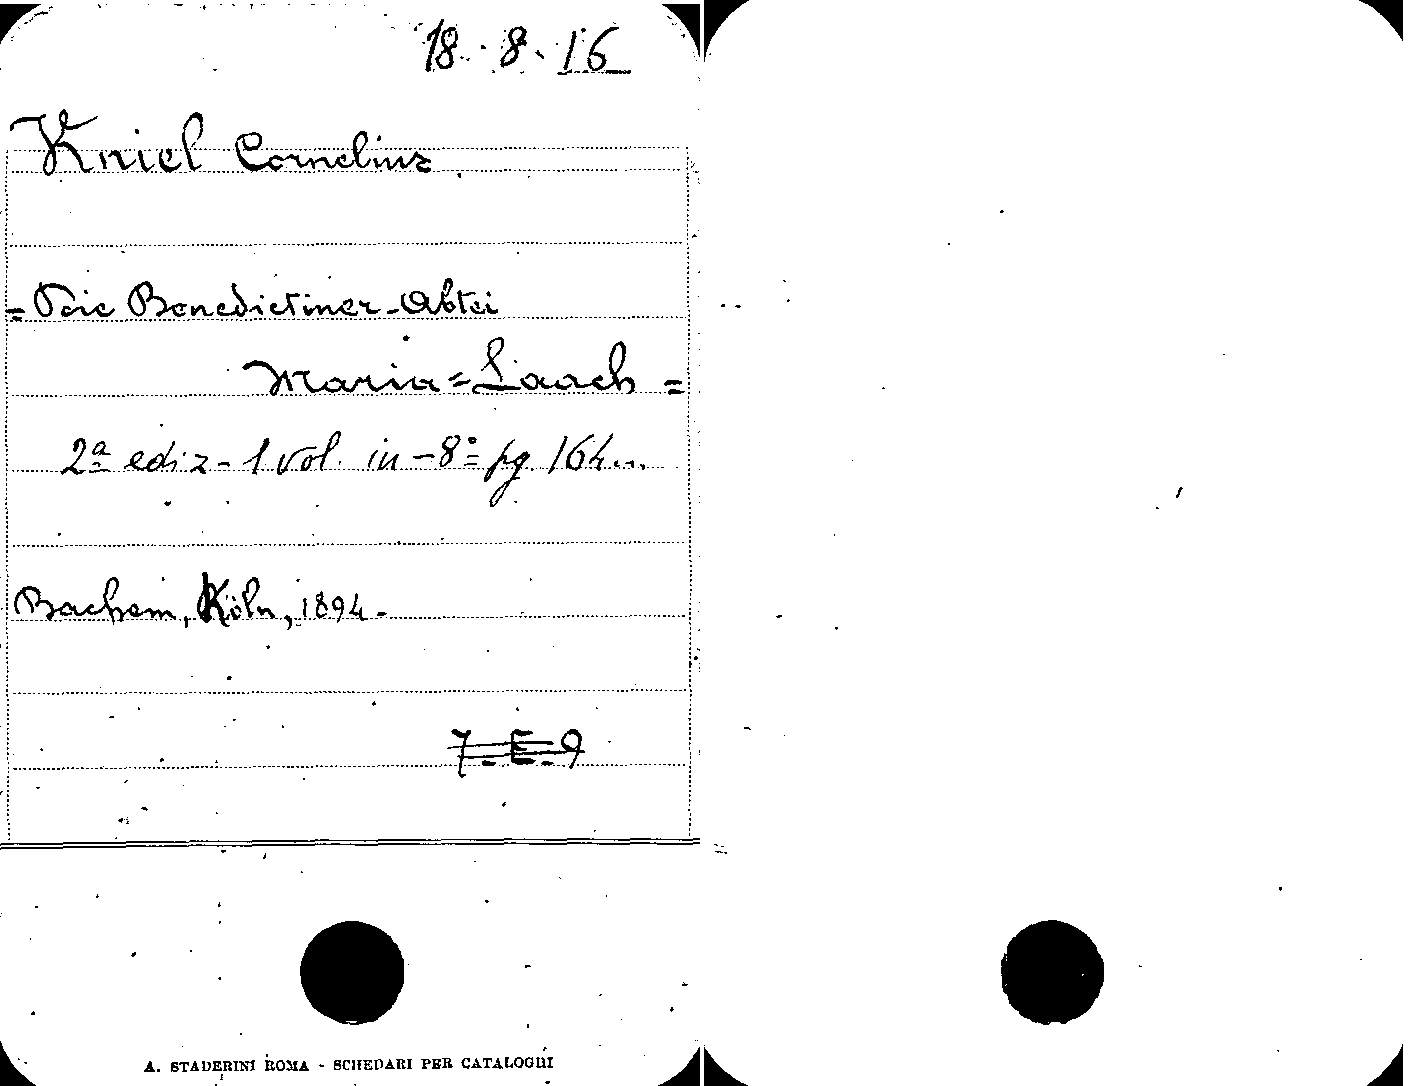 18.8.16
Kniel Cornelius
=Die Benedictiner-Abtei
Maria=Laach=
2ª ediz - 1 vol. in-8º pg. 164...
Bachem, Köln, 1894-
7-E-9
A. STADERINI ROMA - SCHEDARI PER CATALOGHI